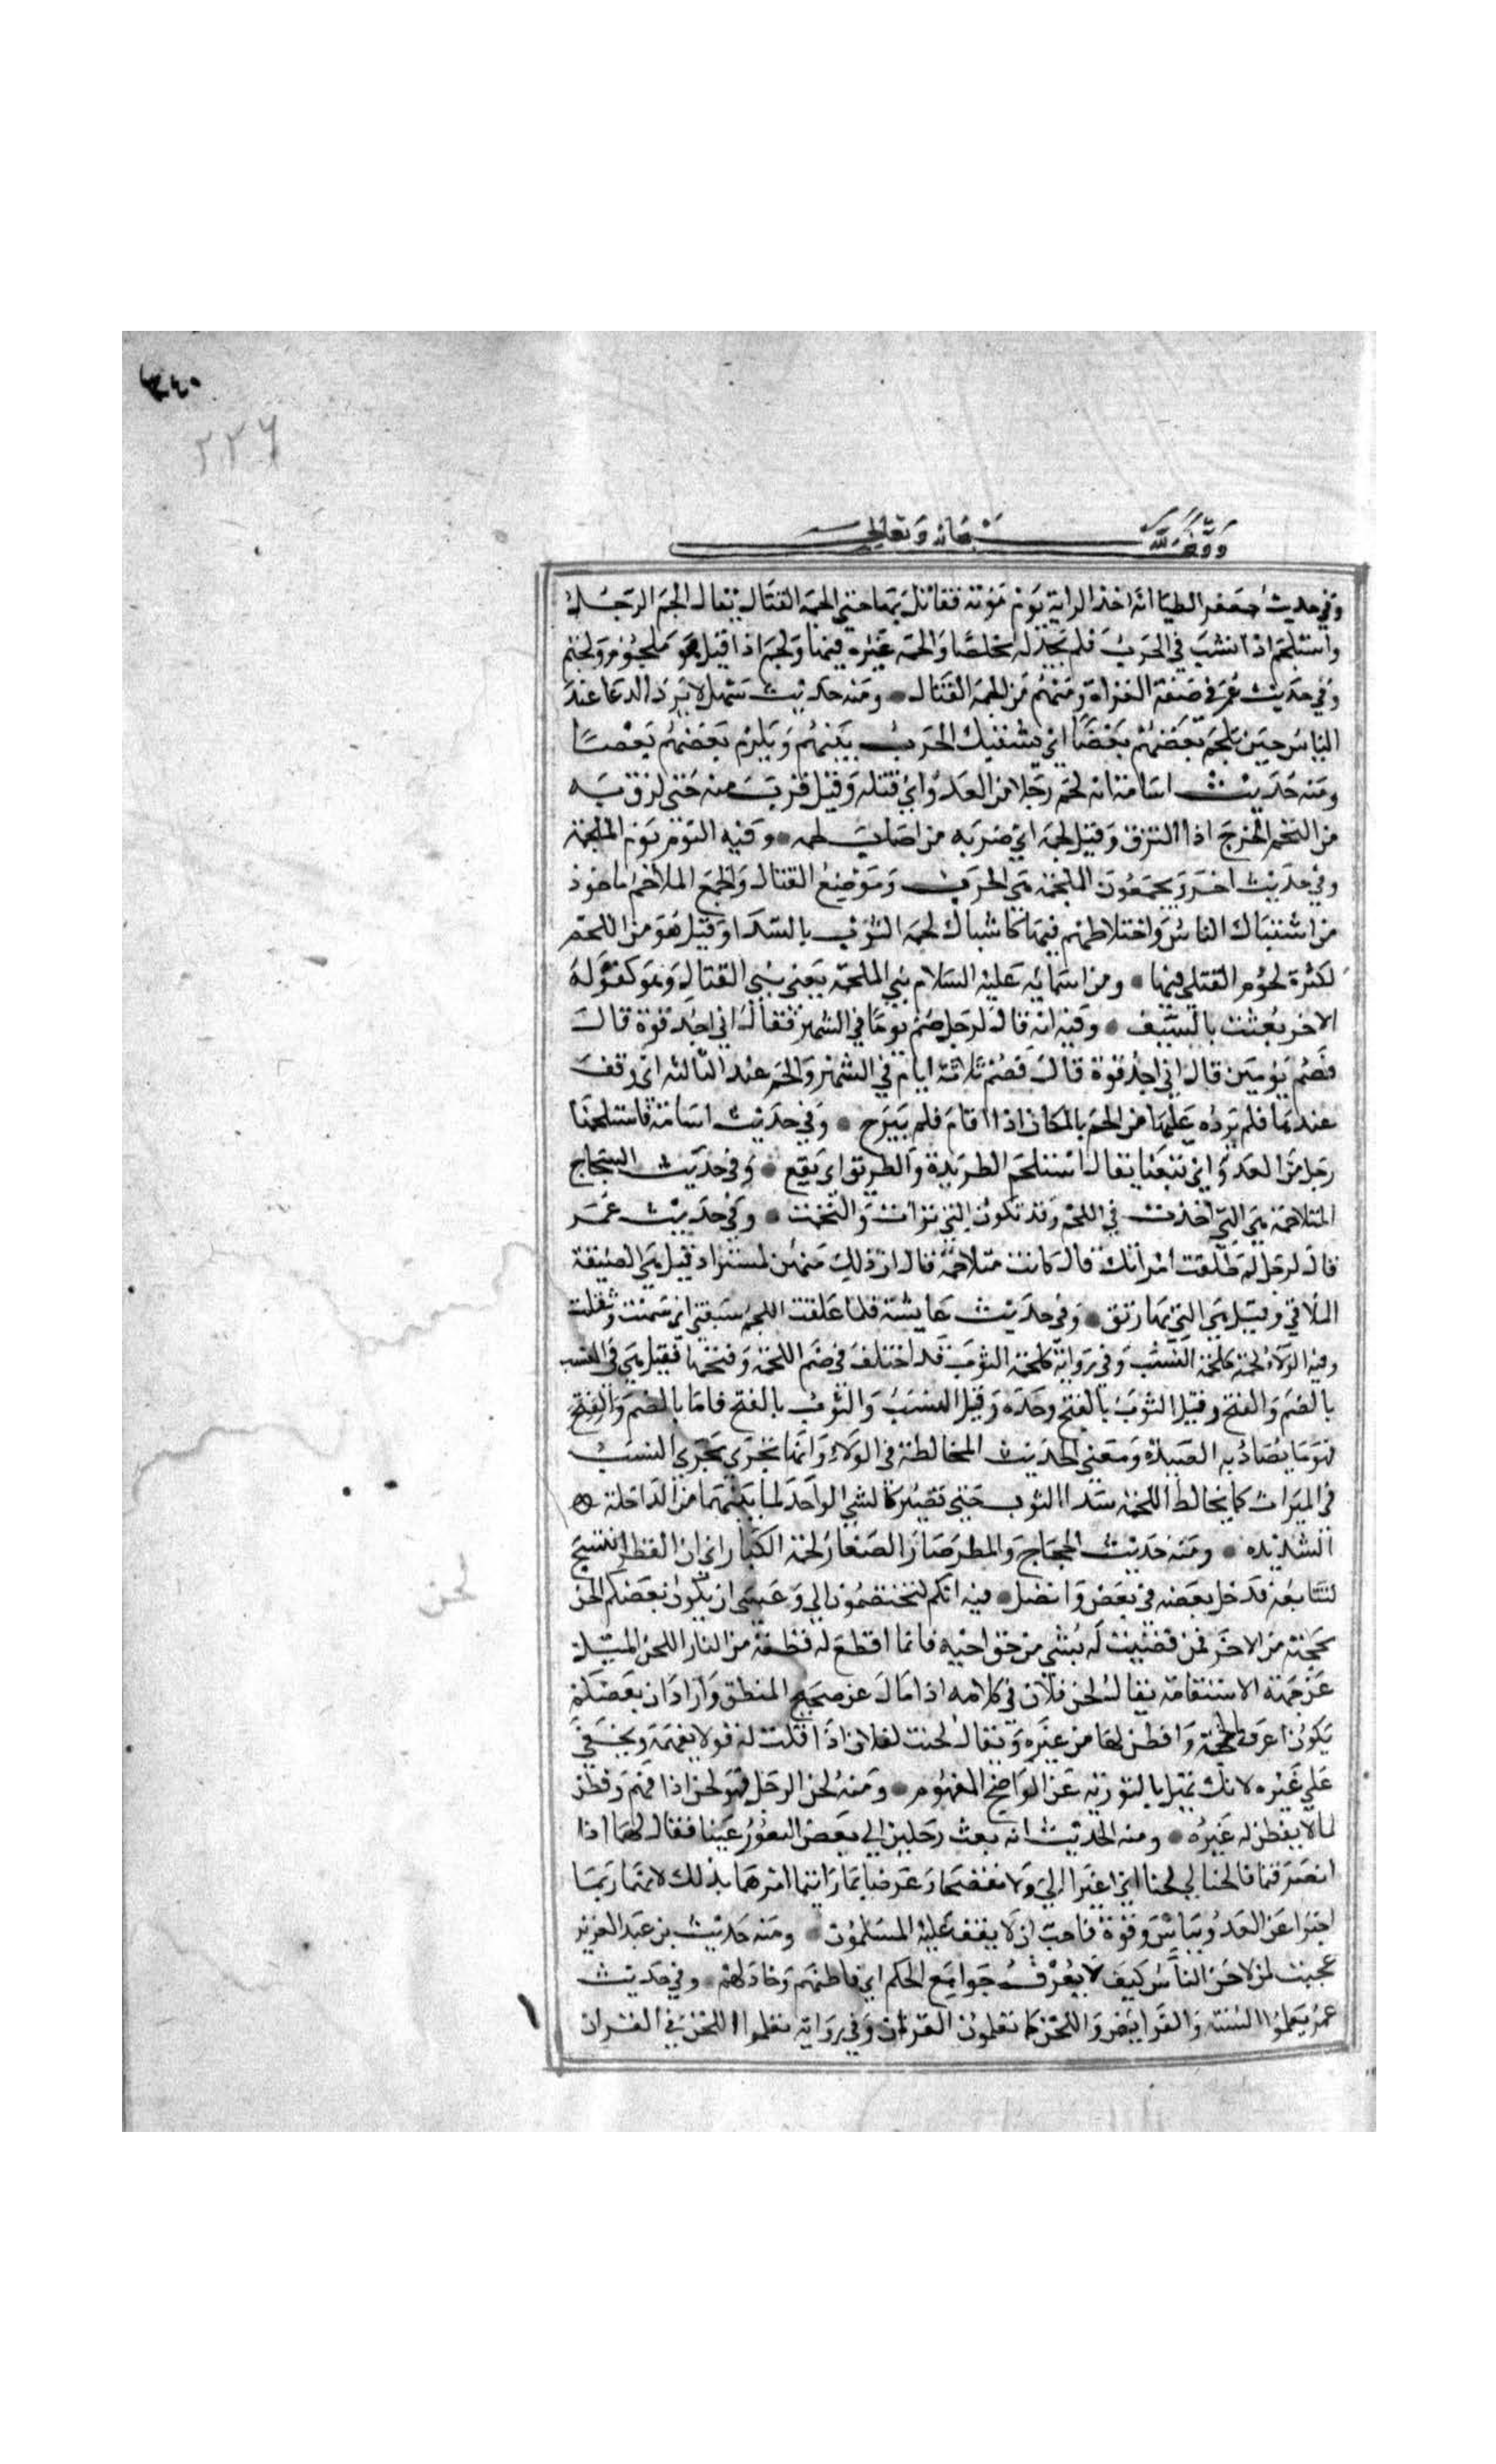 ٣٤٠
٢٢٦
وقف لله سبحانه وتعالى
وفي حديث جعفر الطيار انه اخذ الراية يوم مؤتة فقاتل بها حتى الحمه القتال يقال الحم الرجل
واستلحم اذا نشب في الحرب فلم يجد له مخلصا والحمه غيره فيها ولحم اذا قتل فهو ملحوم ولحيم
وفي حديث عمر في صفة الغزاة ومنهم من الحمه القتال ● ومنه حديث سهل لا يرد الدعا عند
الباس حين يلحم بعضهم بعضا اي يشتبك الحرب بينهم ويلزم بعضهم بعضا
ومنه حديث اسامة انه لحم رجلا من العدو اي قتله وقيل قرب منه حتى لزق به
من التحم الجرح اذا التزق وقيل لحمه اي ضربه من اصاب لحمه ● وفيه اليوم يوم الملحمة
وفي حديث اخر ويجمعون الملحمة هي الحرب وموضع القتال والجمع الملاحم ماخوذ
من اشتباك الناس واختلاطهم فيها كاشباك لحمة الثوب بالسدا وقيل هو من اللحم
لكثرة لحوم القتلى فيها ● ومن اسمائه عليه السلام نبي الملحمة يعني نبي القتال وهو كقوله
الاخر بعثت بالسيف ● وفيه انه قال لرجل صم يوما في الشهر فقال اني اجد قوة قال
فصم يومين قال اني اجد قوة قال فصم ثلاثة ايام في الشهر والحم عند الثالثه اي وقف
عندها فلم يزده عليها من الحم بالمكان اذا اقام فلم يبرح ● وفي حديث اسامة فاستلحمنا
رجل من العدو اي تبعنا يقال استلحم الطريدة والطريق اي تبع ● وفي حديث الشجاج
المتلاحمة هي التي اخذت في اللحم وقد تكون التي برات والتحمت ● وفي حديث عمر
قال لرجل لم طلقت امراتك قال كانت متلاحمة قال ان ذلك منهن لمستراد قيل هي الضيقة
الملاقي وقيل هي التي بها رتق ● وفي حديث عايشة فلما علقت اللحم سبقني اي سمنت وثقلت
وفيه الولاء لحمة كلحمة النسب وفي رواية كلحمة الثوب قد اختلف في ضم اللحمة وفتحها فقيل هي في النسب
بالضم والفتح وقيل الثوب بالفتح وحده وقيل النسب والثوب بالفتح فاما بالضم والفتح
فهو ما يصاد به الصيد ومعنى الحديث المخالطة في الولاء وانها تجري مجرى النسب
في الميراث كما يخالط اللحمة سدا الثوب حتى تصير كالشي الواحد لما بينهما من الداخلة
الشديده ● ومنه حديث الحجاج والمطر صار الصغار لحمة الكبار اي ان القطر انتسج
لتتابعه فدخل بعضه في بعض واتصل ● فيه انكم لتختصمون الي وعسى ان يكون بعضكم الحن
بحجته من الاخر فمن قضيت له بشي من حق اخيه فانما اقطع له قطعة من النار اللحن الميل
عن جهة الاستقامة يقال لحن فلان في كلامه اذا مال عن صحيح المنطق واراد ان بعضكم
يكون اعرف بالحجة وافطن لها من غيره ويقال لحنت لفلان اذا قلت له قولا يفهمه ويخفى
على غيره لانك تميل بالتورية عن الواضح المفهوم ● ومنه لحن الرجل فهو لحن اذا فهم وفطن
لما لا يفطن له غيره ● ومنه الحديث انه بعث رجلين الى بعض الثغور عينا فقال لهما اذا
انصرفتما فالحنا لي لحنا اي اشيرا الي ولا تفصحا وعرضا بما رايتما امرهما بذلك لانهما ربما
اخبرا عن العدو بباس وقوة فاحب ان لا يقف عليه المسلمون ● ومنه حديث بن عبد العزيز
عجبت لمن لاحن الناس كيف لا يعرف جوامع الكلم اي فاطنهم وجادلهم ● وفي حديث
عمر تعلموا السنة والفرايض واللحن كما تعلمون القران وفي رواية تعلموا اللحن في القران
لحن